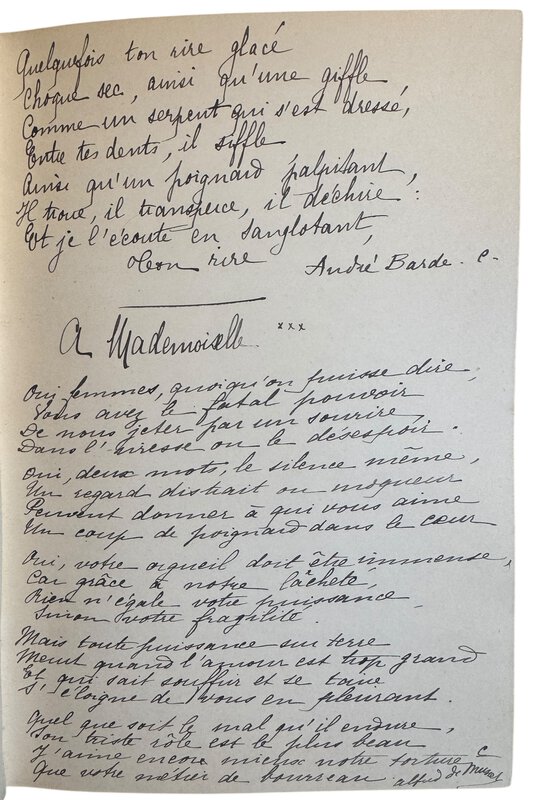 Quelquefois ton rire glacé
Choque sec, ainsi qu'une giffle
Comme un serpent qui s'est dressé,
Entre tes dents, il siffle
Ainsi qu'un poignard palpitant,
Il troue, il transperce, il déchire :
Et je l'écoute en sanglotant,
ton rire
André Barde. C.
A Mademoiselle xxx
Oui femmes, quoiqu'on puisse dire,
Vous avez le fatal pouvoir
De nous jeter par un sourire
Dans l'ivresse ou le désespoir.
Oui, deux mots, le silence même,
Un regard distrait ou moqueur
Peuvent donner à qui vous aime
Un coup de poignard dans le cœur
Oui, votre orgueil doit être immense,
Car grâce à notre lâcheté,
Rien n'égale votre puissance,
Sinon votre fragilité.
Mais toute puissance sur terre
Meurt quand l'amour est trop grand
Et qui sait souffrir et se taire
S'éloigne de vous en pleurant.
Quel que soit le mal qu'il endure,
Son triste rôle est le plus beau
J'aime encore mieux notre torture
Que votre métier de bourreau.
alfred de Musset